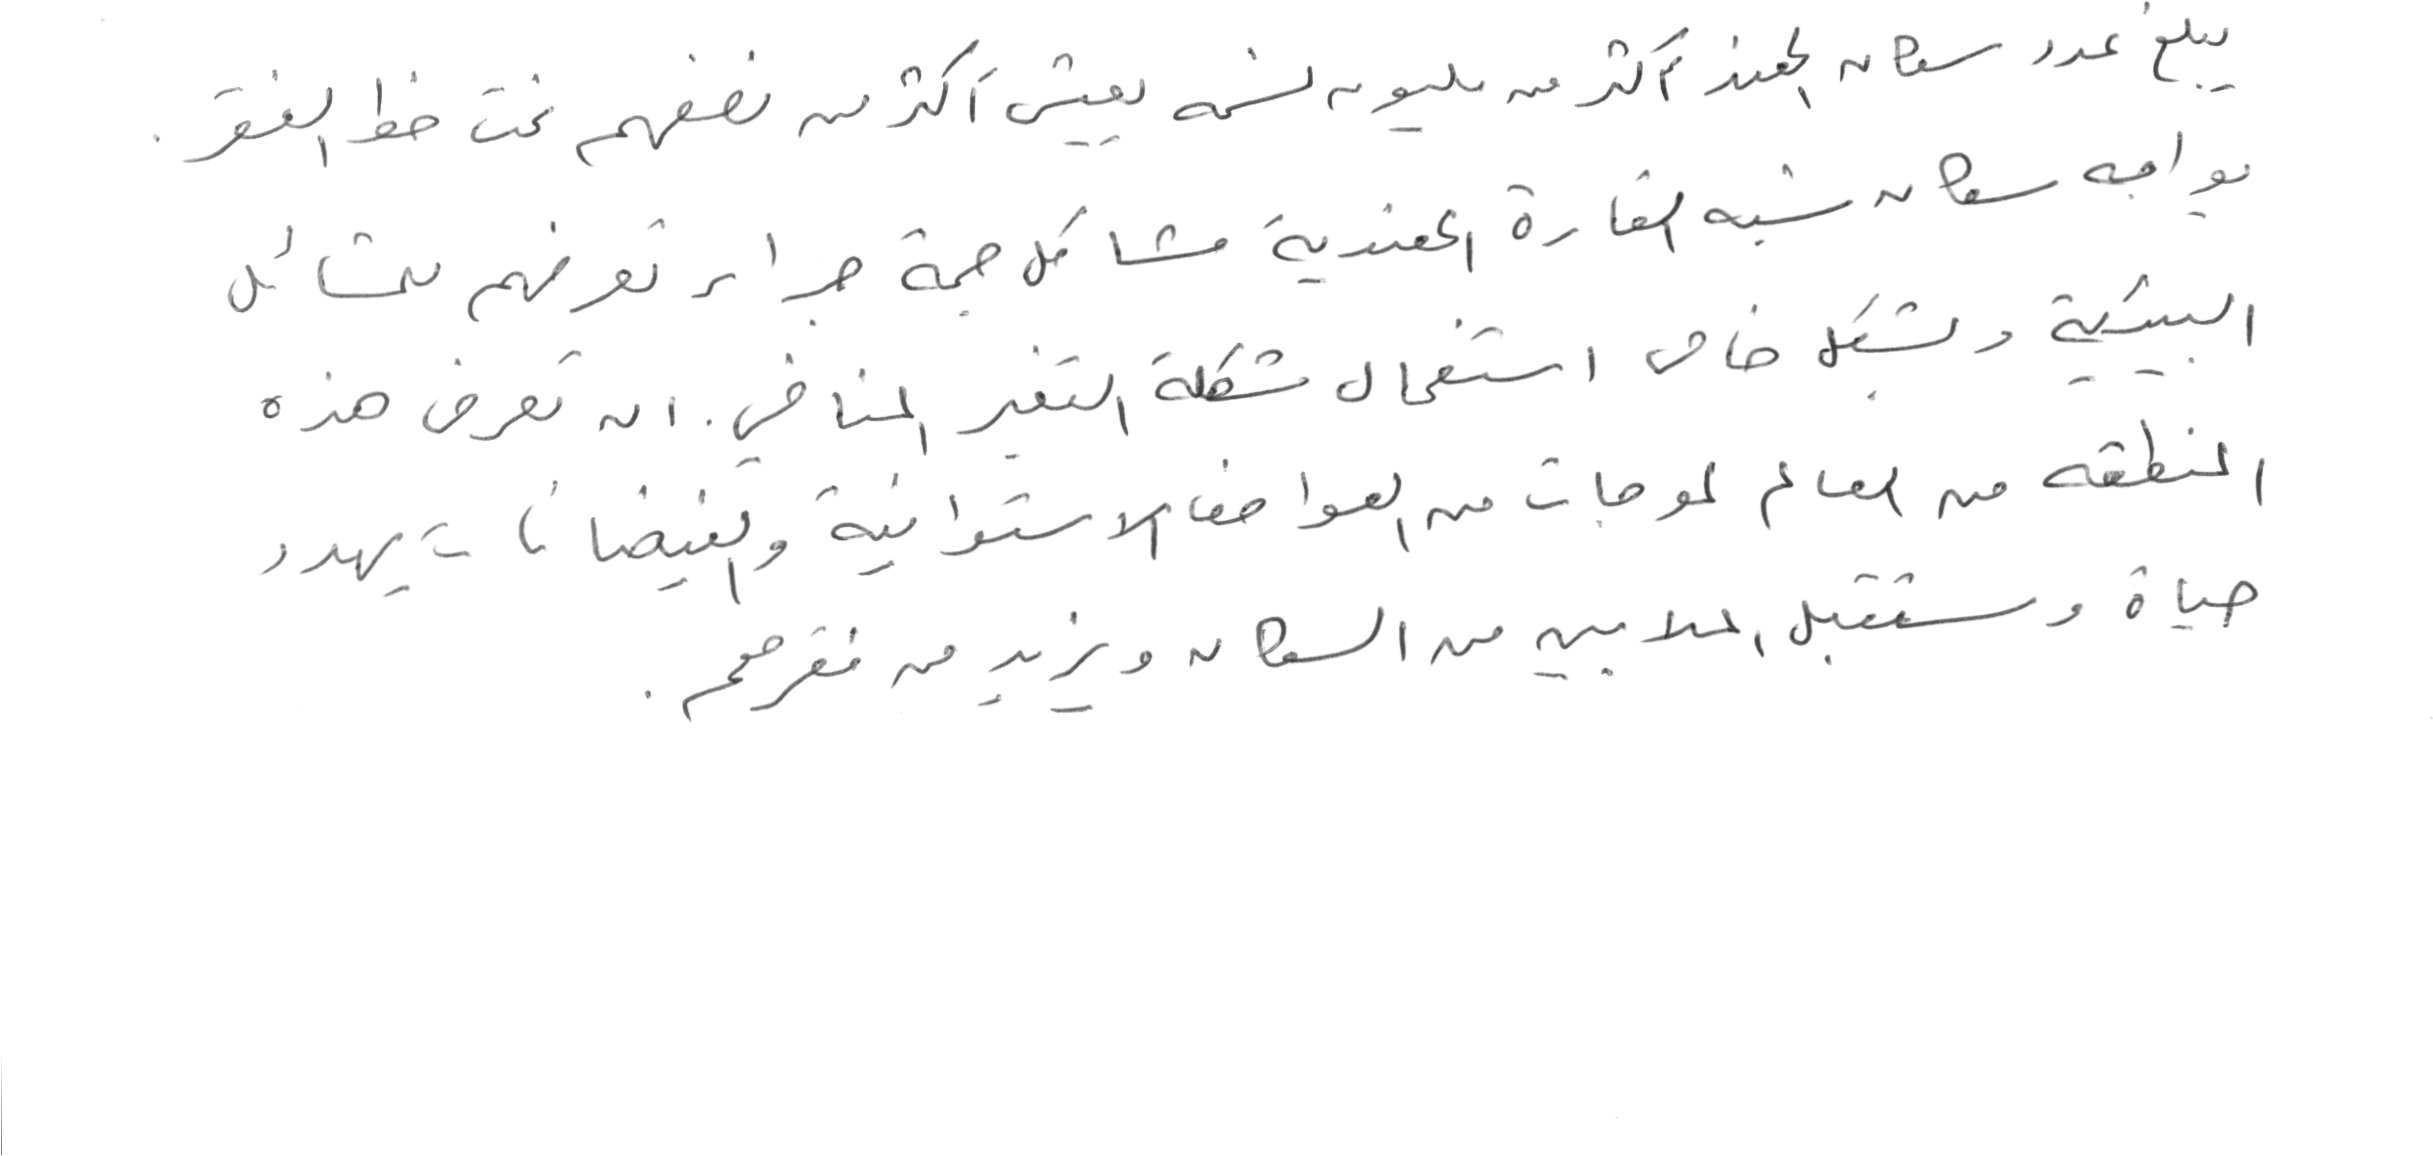 يبلغ عدد سكان الهند أكثر من مليون نسمه يعيش أكثر من نصفهم تحت خط الفقر .
يواجه سكان شبه القارة الهندية مشاكل جمة جراء تعرضهم للمشائل
البيئية وبشكل خاص استفحال مشكلة التغير المناخي . ان تعرض هذه
المنطقه من العالم لموجات من العواصف الاستوائية والفيضانات يهدد
حياة ومستقبل الملايين من السكان ويزيد من فقرهم .